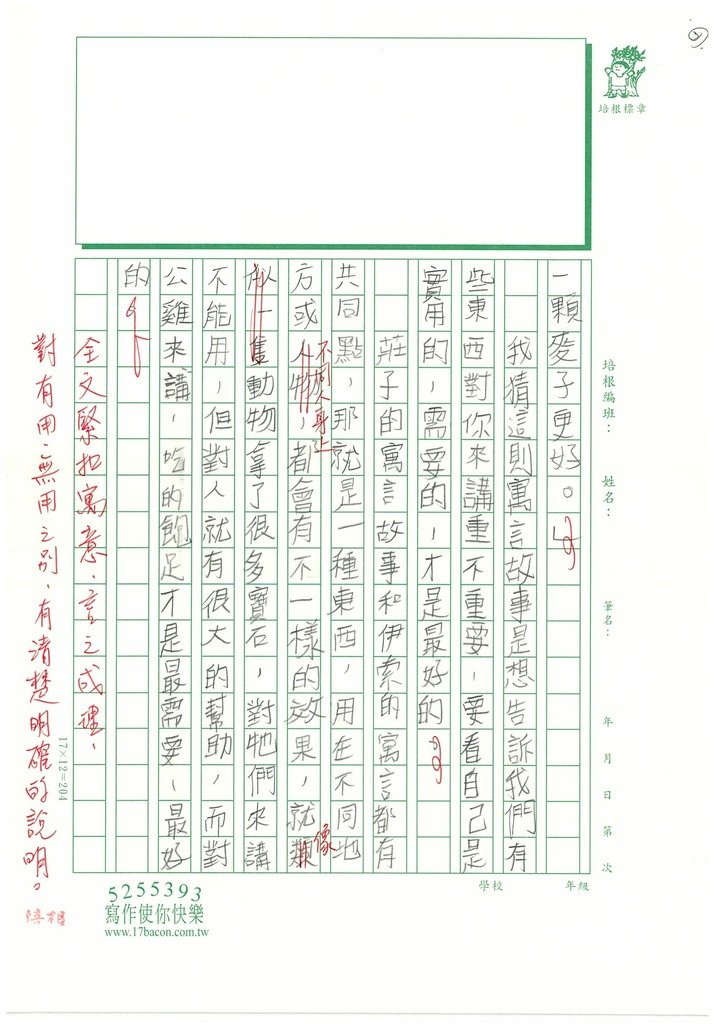 培根標章
培根編班：
姓名：
筆名：
年 月 日 第 次
學校
年級
一顆麥子更好。
我猜這則寓言故事是想告訴我們有
些東西對你來講重不重要，要看自己是
實用的，需要的，才是最好的
莊子的寓言故事和伊索的寓言都有
共同點，那就是一種東西，用在不同地
方或人物，都會有不一樣的效果，就類
不同人身上
像
似一隻動物拿了很多寶石，對牠們來講
不能用，但對人就有很大的幫助，而對
公雞來講，吃的飽足才是最需要，最好
的
全文緊扣寓意，言之成理，
對有用、無用之別，有清楚明確的說明。
培根
17×12=204
5255393
寫作使你快樂
www.17bacon.com.tw